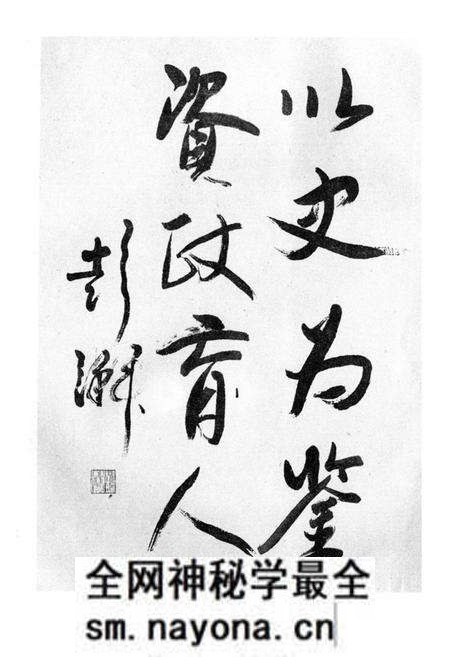 以史为鉴
資政育人
彭
全网神秘学最全
sm.nayona.cn